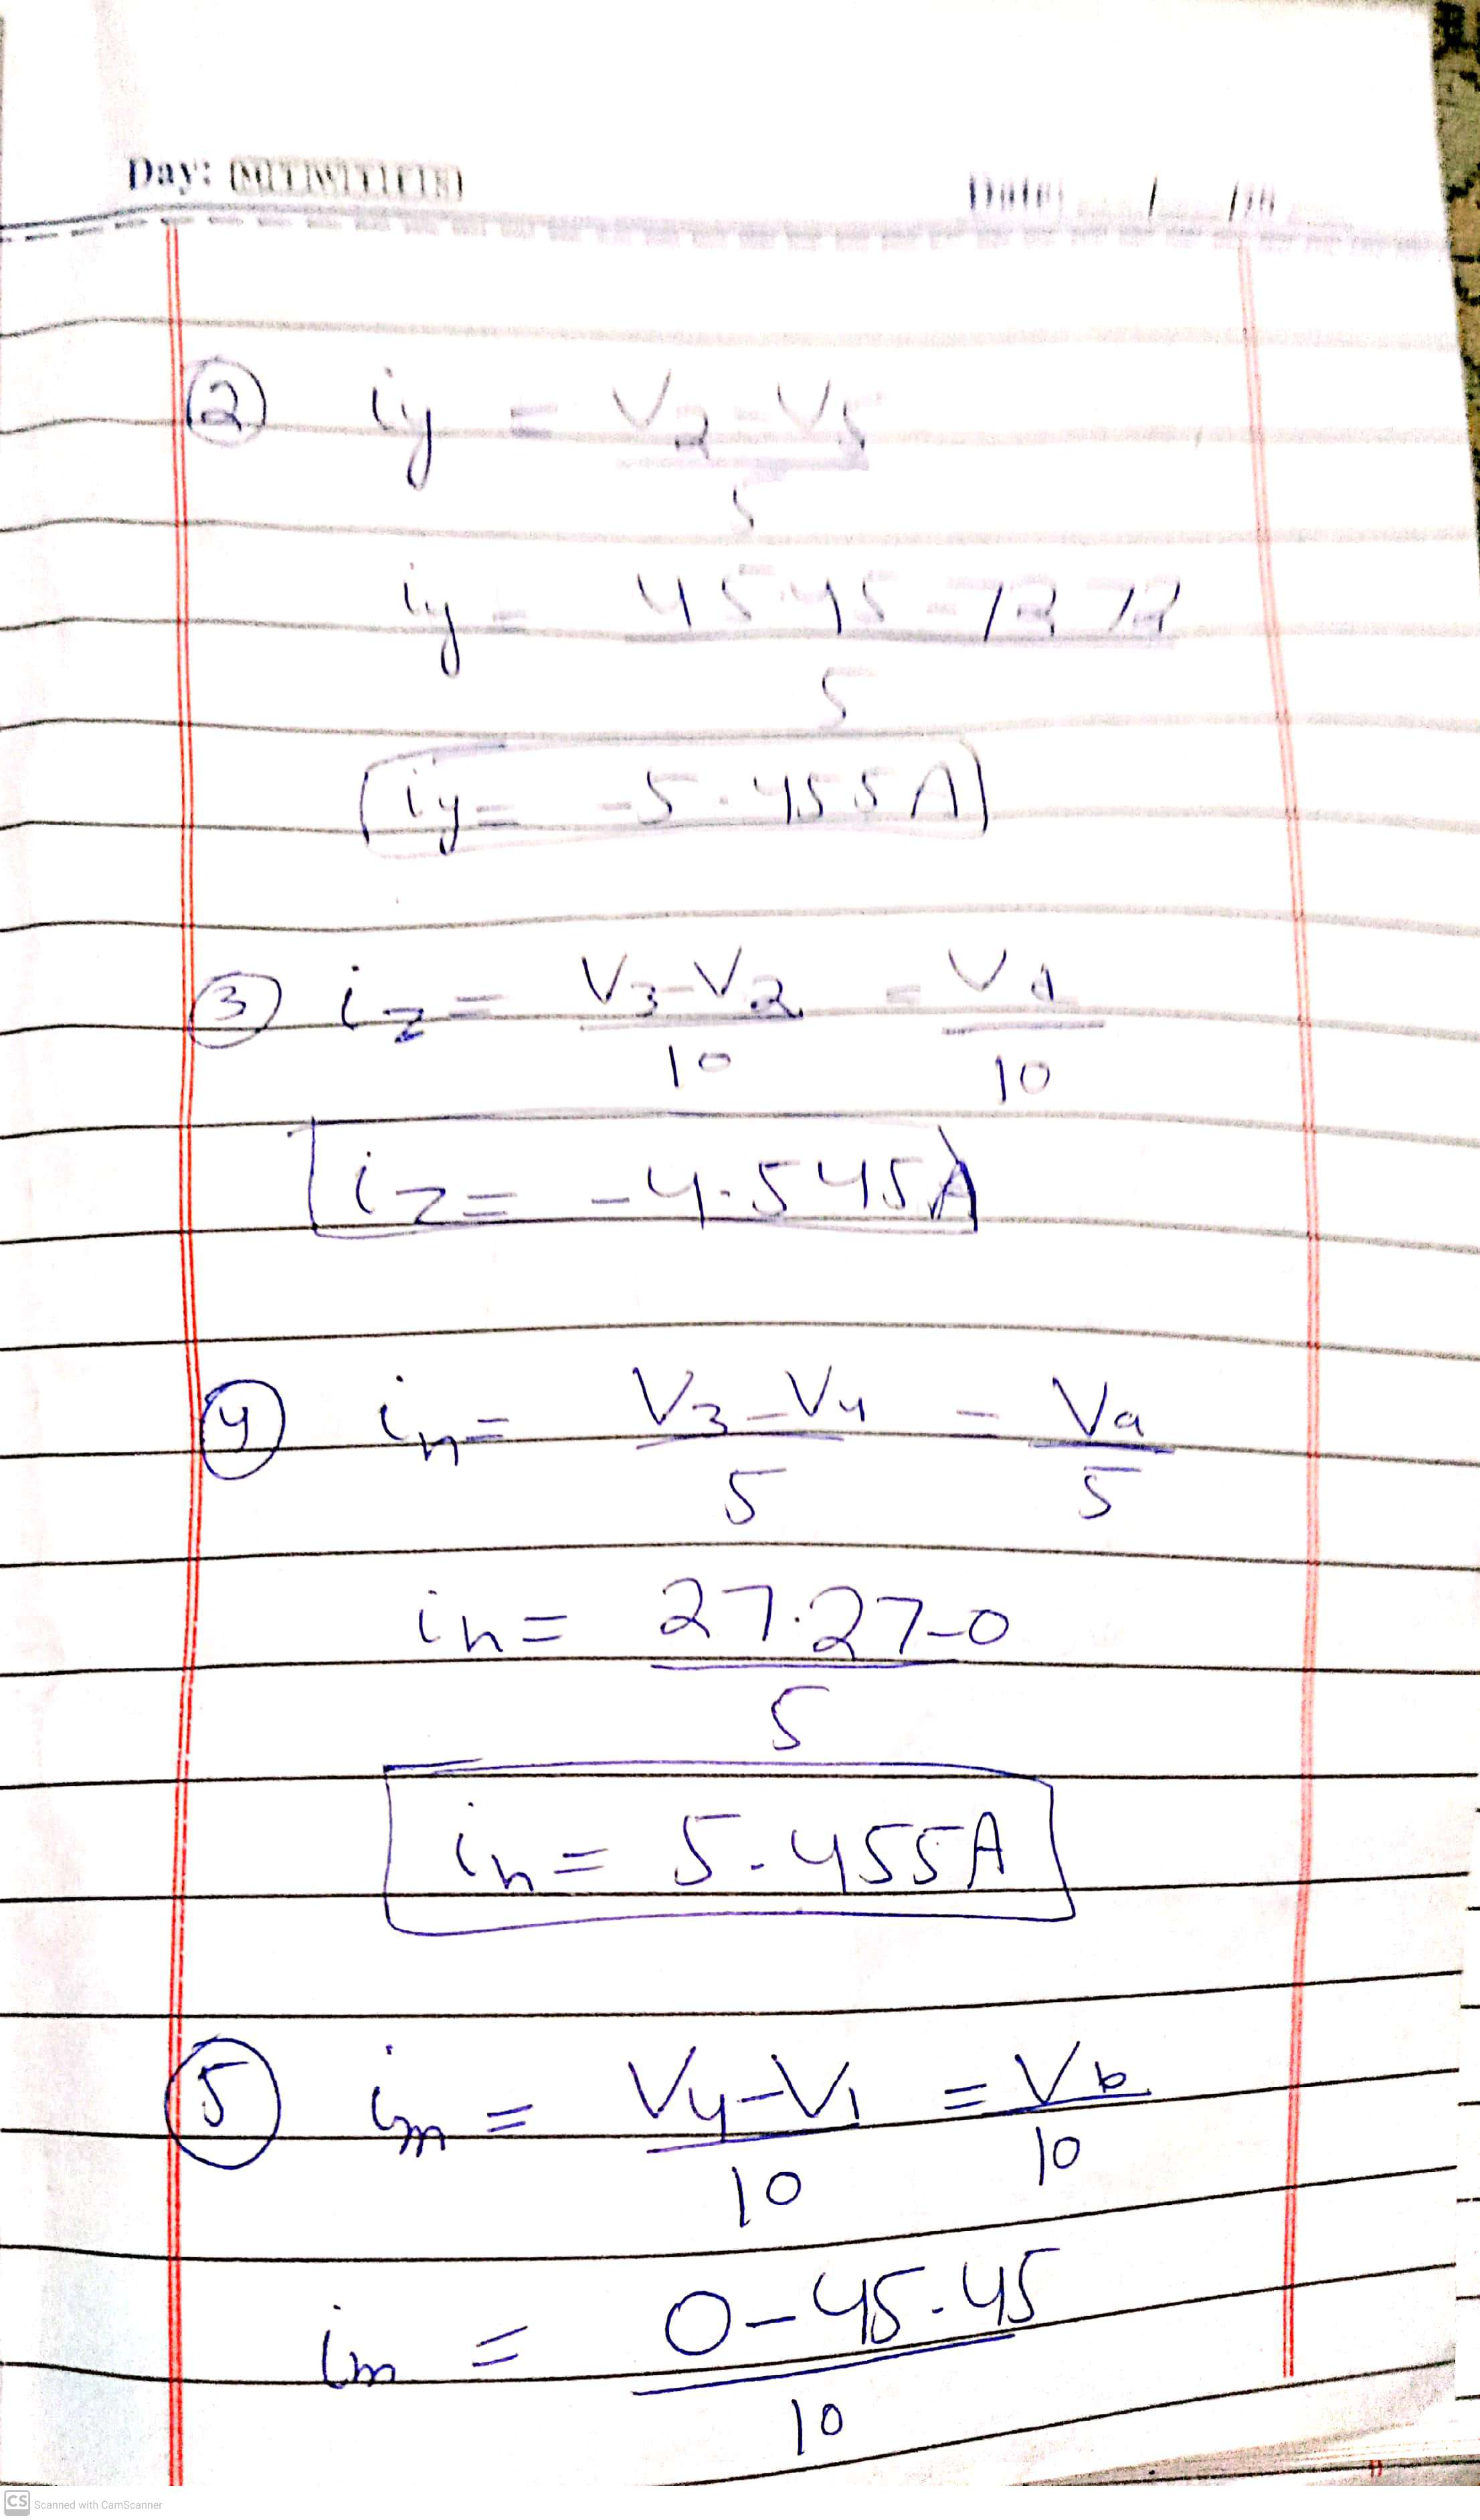 Day:
Date: / /20
② iy = V2 - V5
5
iy = 45.45 - 72.72
5
iy = -5.455A
③ iz = V3-V2 = Vd
10 10
iz = -4.545A
④ in = V3-V4 = Va
5 5
in = 27.27-0
5
in = 5.455A
⑤ im = V4-V1 = Vb
10 10
im = 0-45.45
10
CS Scanned with CamScanner